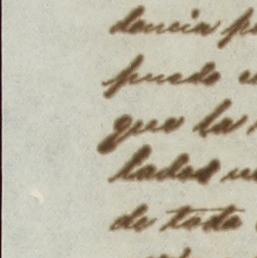 dencia p
puedo e
que la
lados u
de toda